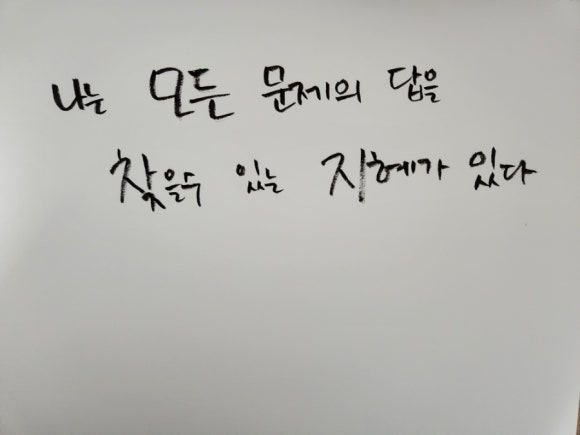 나는 모든 문제의 답을
찾을수 있는 지혜가 있다